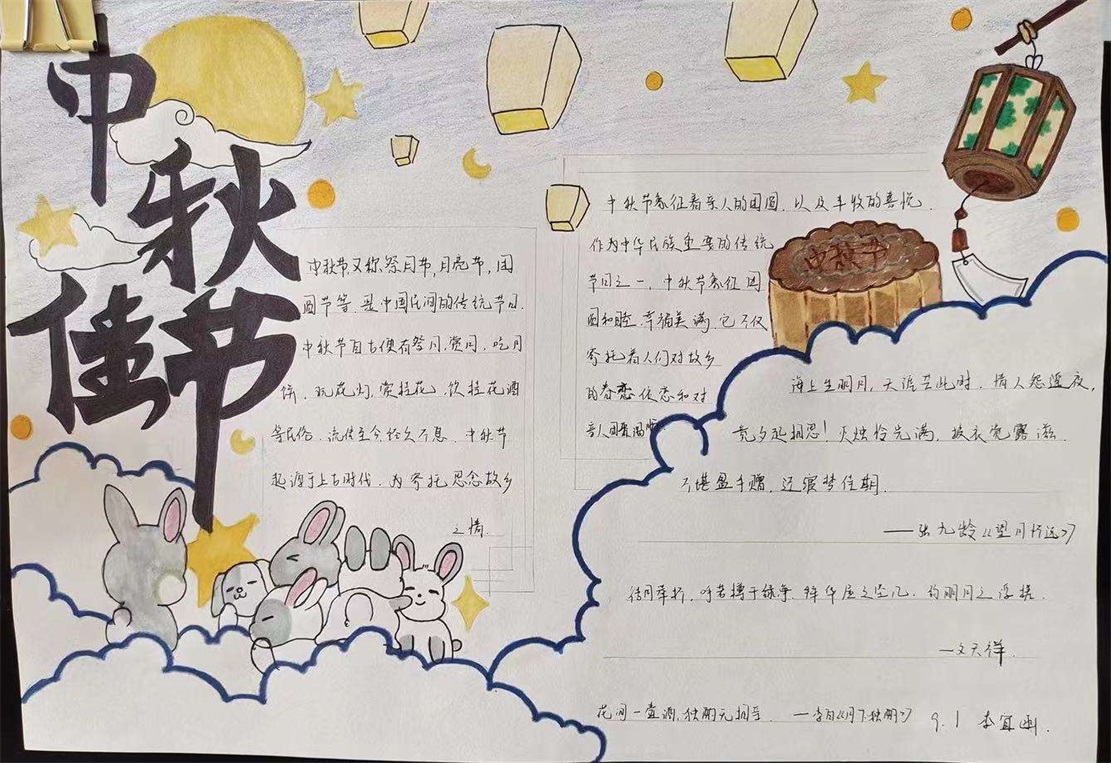 中秋
佳节
中秋节又称祭月节,月亮节,团
圆节等.是中国民间的传统节日.
中秋节自古便有祭月,赏月,吃月
饼,玩花灯,赏桂花,饮桂花酒
等民俗.流传至今经久不息.中秋节
起源于上古时代.为寄托思念故乡
之情.
中秋节象征着亲人的团圆.以及丰收的喜悦.
作为中华民族重要的传统
节日之一,中秋节象征团
圆和睦.幸福美满.它不仅
寄托着人们对故乡
的眷恋依恋和对
亲人团聚团圆
中秋节
海上生明月,天涯共此时.情人怨遥夜,
竟夕起相思!灭烛怜光满,披衣觉露滋.
不堪盈手赠,还寝梦佳期.
——张九龄《望月怀远》
约明月之浮槎.
—文天祥.
花间一壶酒,独酌无相亲. —李白《月下独酌》
9.1 李宜